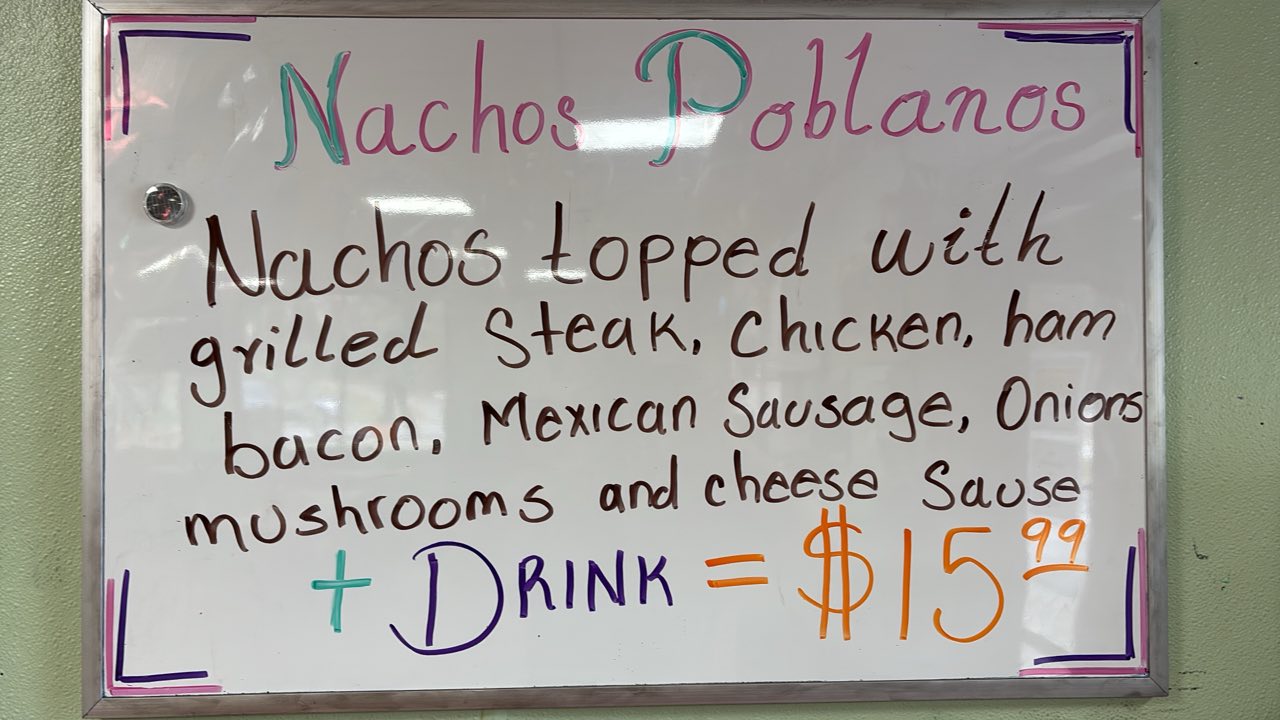 Nachos Poblanos
Nachos topped with
grilled Steak, Chicken, ham
bacon, Mexican Sausage, Onions
mushrooms and cheese Sause
+ DRINK = $15.99